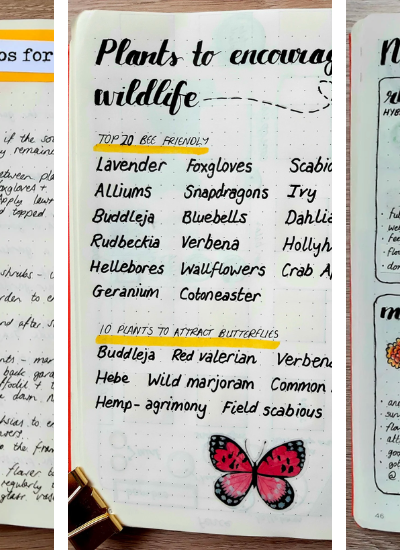 os for
if the so
between pl
foxgloves +
Apply law
d topped.
shrubs -
rden to e
nd after s
nts - mar
back gard
ffodil + t
down
hsias to e
the fra
flower b
regularly
glass
Plants to encourag
wildlife
TOP 20 BEE FRIENDLY
Lavender Foxgloves Scabio
Alliums Snapdragons Ivy
Buddleja Bluebells Dahlia
Rudbeckia Verbena Hollyh
Hellebores Wallflowers Crab A
Geranium Cotoneaster
10 PLANTS TO ATTRACT BUTTERFLIES
Buddleja Red valerian Verben
Hebe Wild marjoram Common
Hemp-agrimony Field scabious
HYB
46